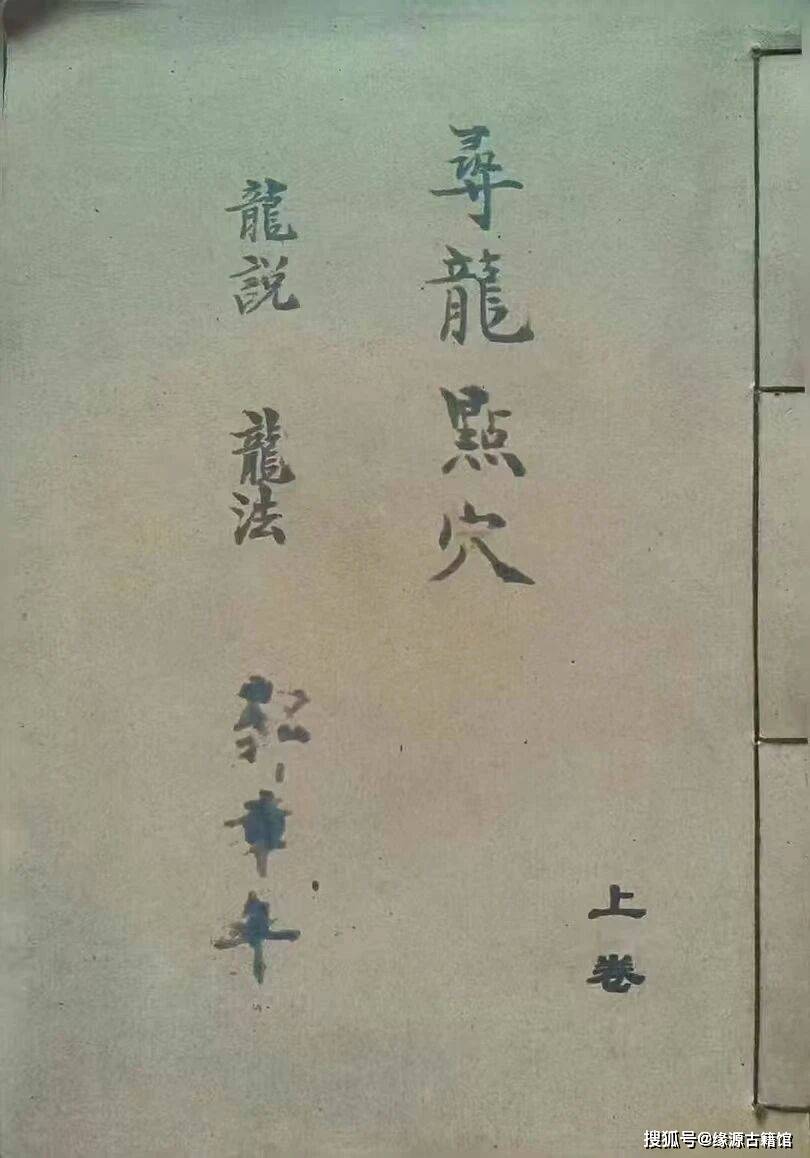 上卷
尋龍點穴
龍説 龍法 章年
搜狐号@缘源古籍馆